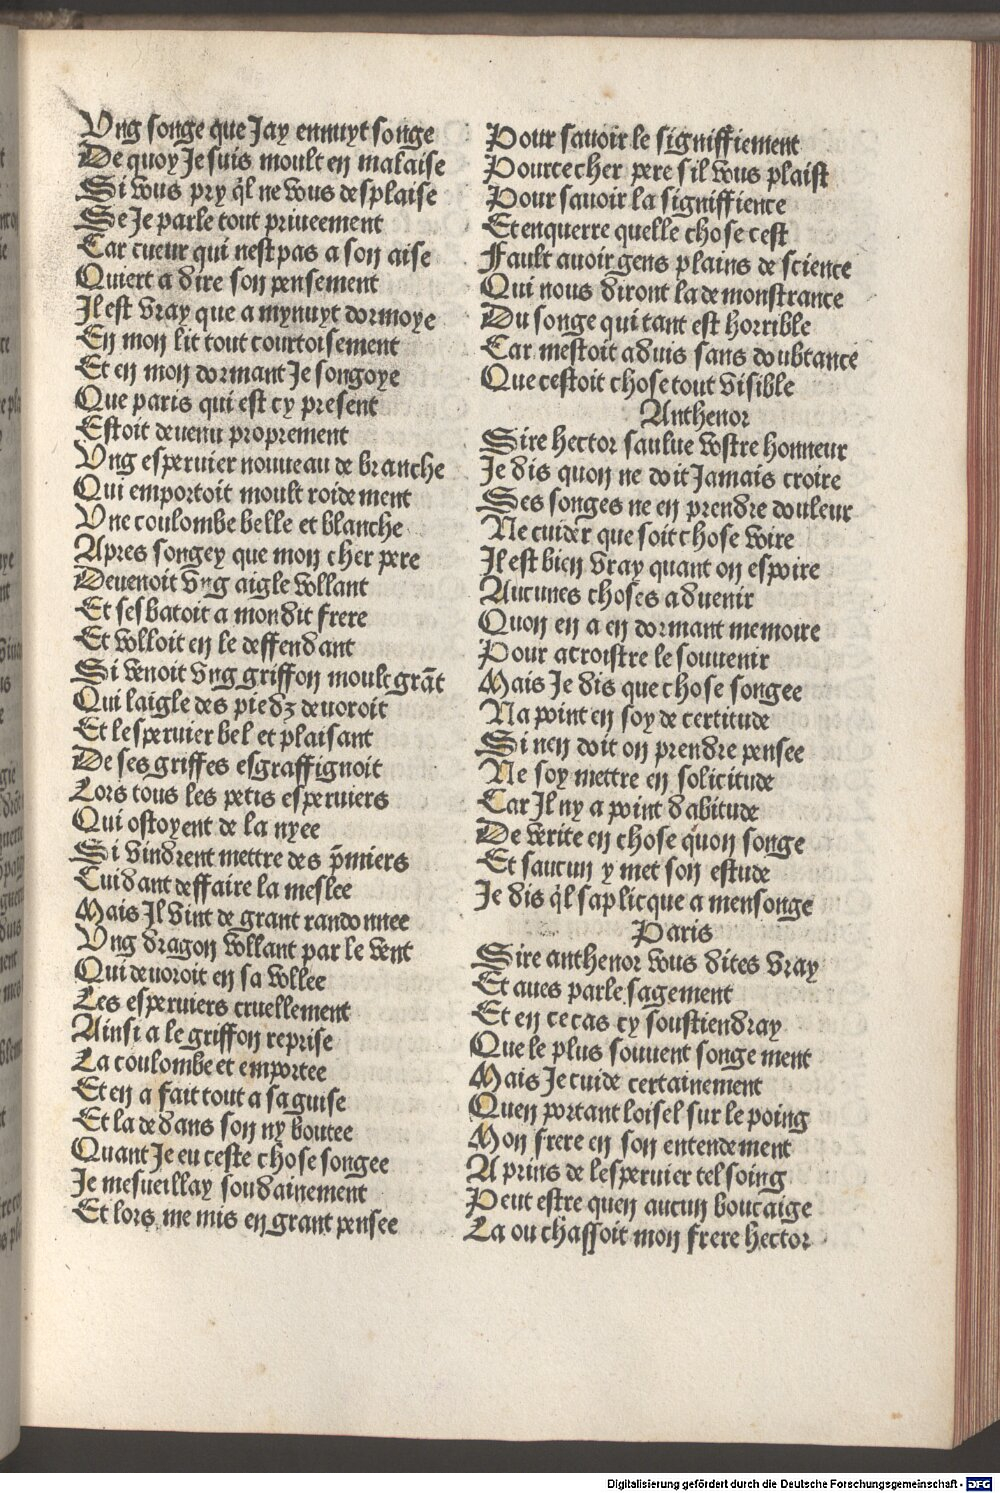 Vng songe que Jay ennuyt songe
De quoy Je suis moult en malaise
Si vous pry q̃l ne vous desplaise
Se Je parle tout priueement
Car cueur qui nest pas a son aise
Quiert a dire son pensement
Il est vray que a mynuyt dormoye
En mon lit tout courtoisement
Et en mon dormant Je songoye
Que paris qui est cy present
Estoit deuenu proprement
Vng esperuier nouueau de branche
Qui emportoit moult roidement
Vne coulombe belle et blanche
Apres songey que mon cher pere
Deuenoit vng aigle vollant
Et sesbatoit a mondit frere
Et volloit en le deffendant
Si venoit vng griffon moult grāt
Qui laigle des piedz deuoroit
Et lesperuier bel et plaisant
De ses griffes esgraffignoit
Lors tous les petis esperuiers
Qui ostoyent de la nyee
Si vindrent mettre des p̄miers
Cuidant deffaire la meslee
Mais Il vint de grant randonnee
Vng dragon vollant par le vent
Qui deuoroit en sa vollee
Les esperuiers cruellement
Ainsi a le griffon reprise
La coulombe et emportee
Et en a fait tout a sa guise
Et la dedans son ny boutee
Quant Je eu ceste chose songee
Je mesueillay soudainement
Et lors me mis en grant pensee
Pour sauoir le signiffiement
Pource cher pere sil vous plaist
Pour sauoir la signiffience
Et enquerre quelle chose cest
Fault auoir gens plains de science
Qui nous diront la demonstrance
Du songe qui tant est horrible
Car mestoit aduis sans doubtance
Que cestoit chose tout visible
Anthenor
Sire hector saulue vostre honneur
Je dis quon ne doit Jamais croire
Ses songes ne en prendre douleur
Ne cuider que soit chose voire
Il est bien vray quant on espoire
Aucunes choses aduenir
Quon en a en dormant memoire
Pour acroistre le souuenir
Mais Je dis que chose songee
Na point en soy de certitude
Si nen doit on prendre pensee
Ne soy mettre en solicitude
Car Il ny a point dabitude
De verite en chose quon songe
Et saucun y met son estude
Je dis q̃l saplicque a mensonge
Paris
Sire anthenor vous dites vray
Et aues parle sagement
Et en ce cas cy soustiendray
Que le plus souuent songe ment
Mais Je cuide certainement
Quen portant loisel sur le poing
Mon frere en son entendement
A prins de lesperuier tel soing
Peut estre quen aucun boucaige
La ou chassoit mon frere hector
Digitalisierung gefördert durch die Deutsche Forschungsgemeinschaft - DFG